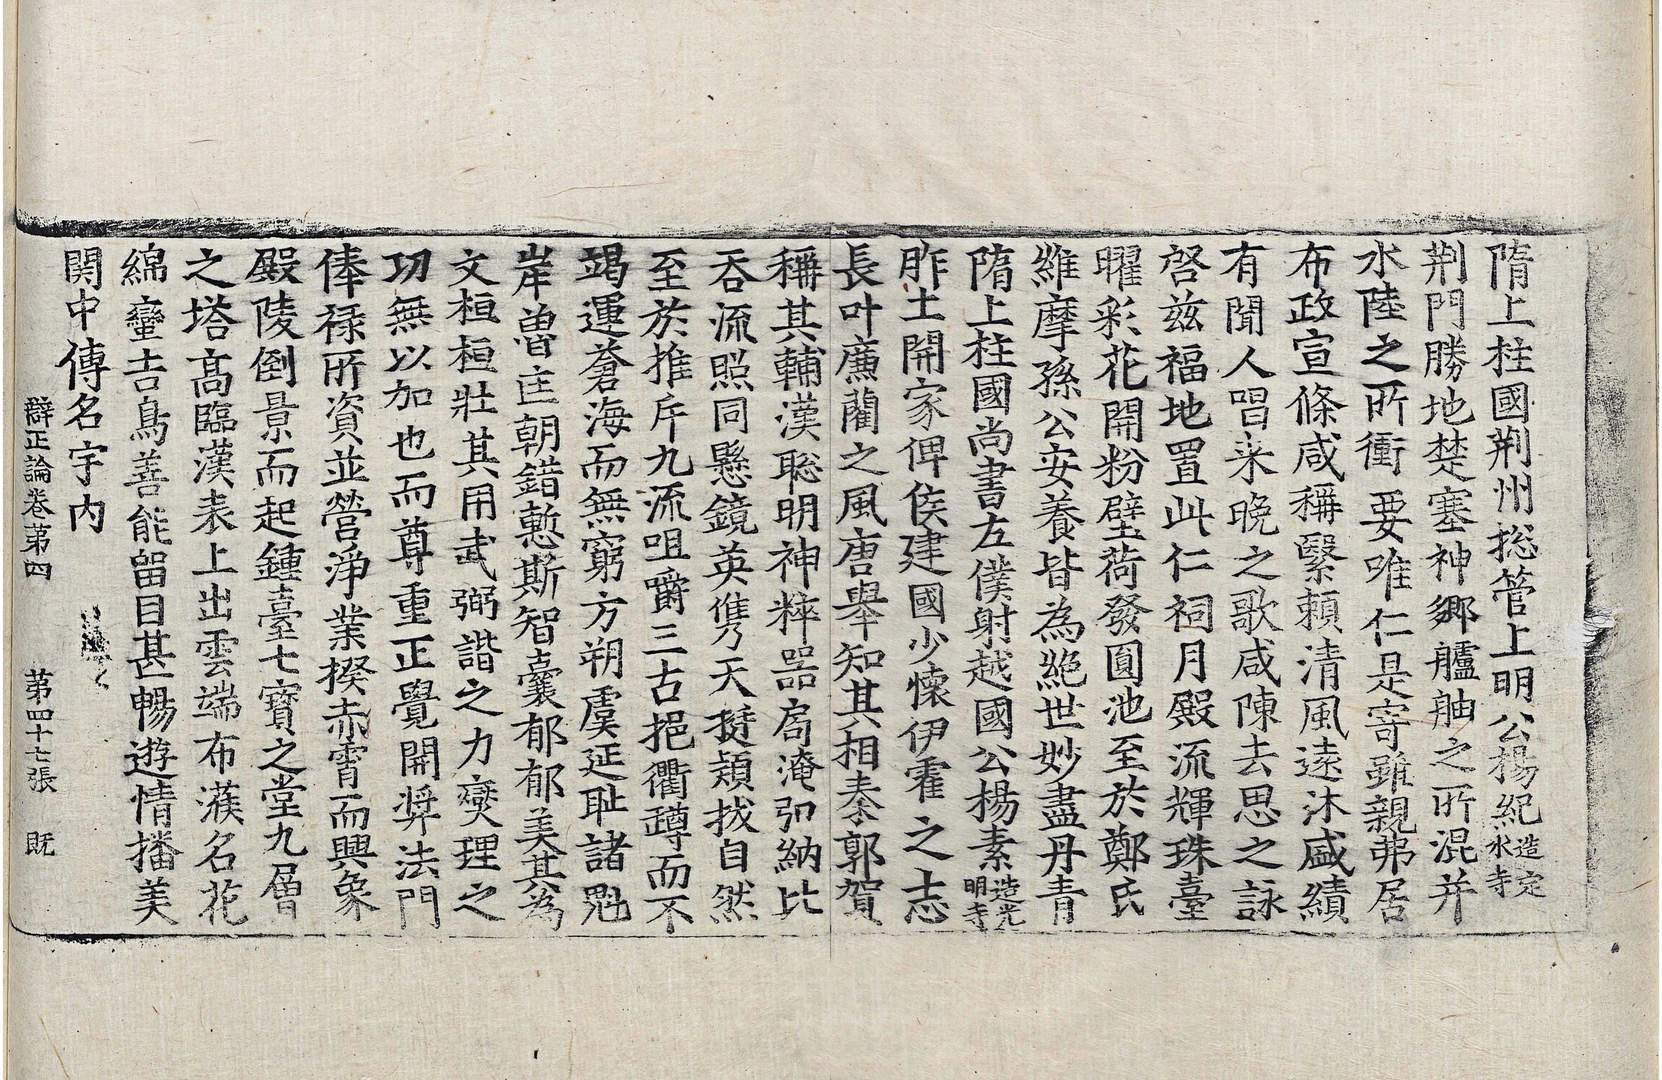 隋上柱國荆州揔管上明公楊紀造定水寺
荆門勝地楚塞神郷艫舳之所混并
水陸之所衝要唯仁是寄雖親弗居
布政宣條咸稱緊賴清風遠沐盛績
有聞人唱来晚之歌咸陳去思之詠
啓兹福地置此仁祠月殿流輝珠臺
曜彩花開粉壁荷發圓池至於鄭氏
維摩孫公安養皆為絶世妙盡丹青
隋上柱國尚書左僕射越國公楊素造光明寺
胙土開家俾侯建國少懷伊霍之志
長叶廉藺之風唐舉知其相秦郭賀
稱其輔漢聡明神粹器局淹弘納比
吞流照同懸鏡英儁天挺穎拔自然
至於推斥九流咀嚼三古挹衢罇而不
竭運蒼海而無窮方朔虞延耻諸魁
岸曽庄朝錯慙斯智囊郁郁美其為
文桓桓壯其用武弼諧之力爕理之
功無以加也而尊重正覺開弉法門
俸禄所資並營淨業揆赤霄而興象
殿陵倒景而起鍾臺七寶之堂九層
之塔髙臨漢表上出雲端布濩名花
綿蠻吉鳥善能留目甚暢遊情播美
関中傳名宇内
辯正論卷苐四 苐四十七張 既